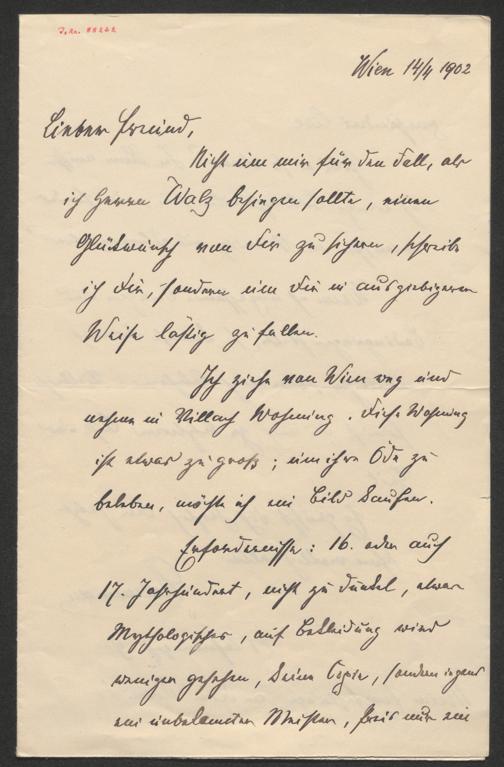 J. Nr. 88222
Wien 14/4 1902
Lieber Freund,
Nicht um mir für den Fall, als
ich Herrn Walz besiegen sollte, einen
Glückwunsch von Dir zu sichern, schreibe
ich Dir, sondern um Dir in ausgiebigerer
Weise lästig zu fallen.
Ich ziehe von Wien weg und
nehme in Villach Wohnung. Diese Wohnung
ist etwas zu groß; um ihre Öde zu
beleben, möchte ich ein Bild kaufen.
Erfordernisse: 16. oder auch
17. Jahrhundert, nicht zu dunkel, etwas
Mythologisches, auf Bekleidung wird
weniger gesehen, keine Copie, sondern irgend
ein unbekannter Meister, Preis nur ein